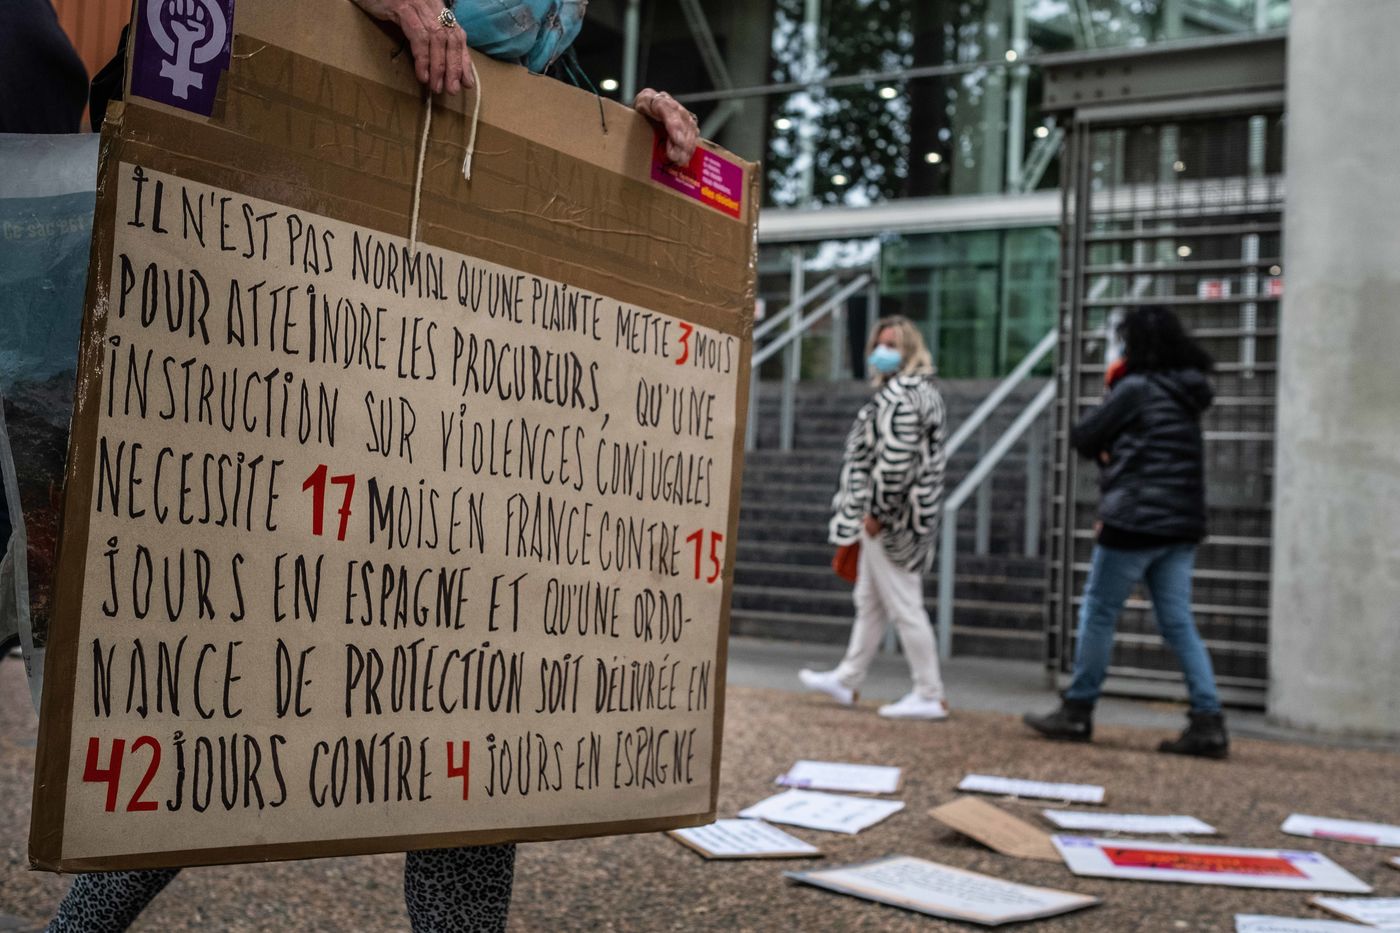 IL N'EST PAS NORMAL QU'UNE PLAINTE METTE 3 MOIS
POUR ATTEINDRE LES PROCUREURS, QU'UNE
INSTRUCTION SUR VIOLENCES CONJUGALES
NECESSITE 17 MOIS EN FRANCE CONTRE 15
JOURS EN ESPAGNE ET QU'UNE ORDO-
NANCE DE PROTECTION SOIT DÉLIVRÉE EN
42 JOURS CONTRE 4 JOURS EN ESPAGNE